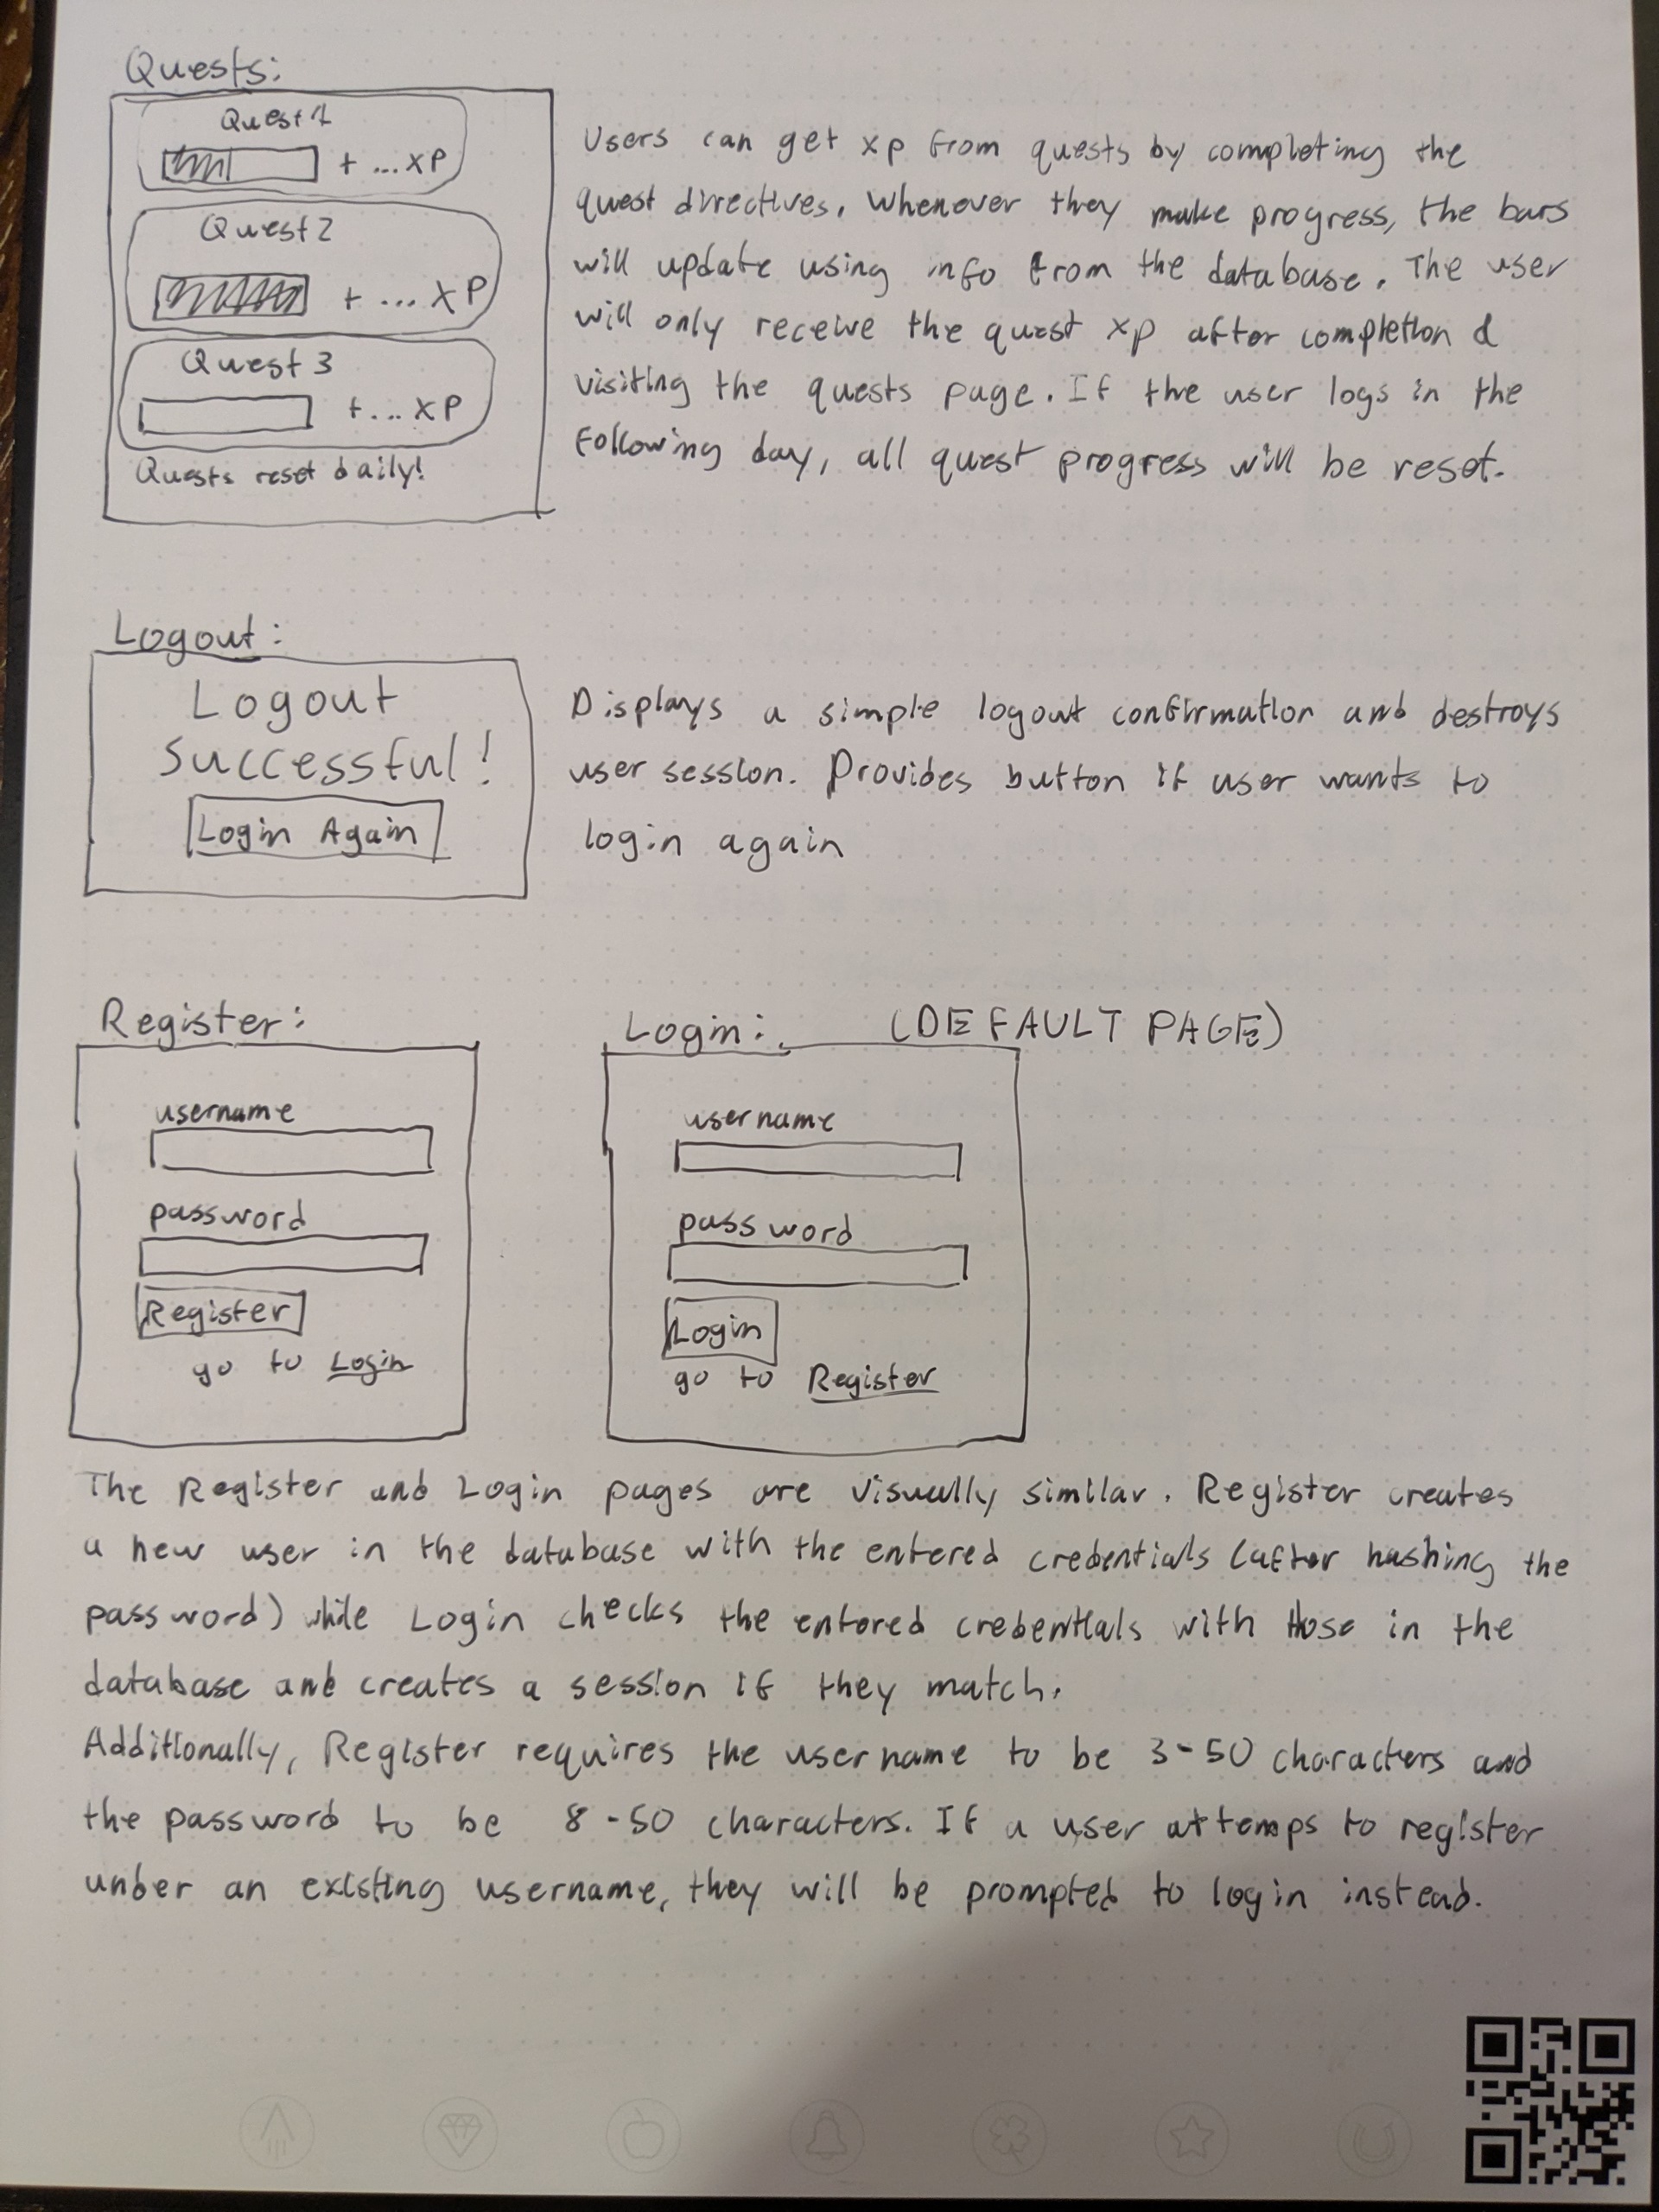 Quests:
Quest 1
+ ... XP
Quest 2
+ ... XP
Quest 3
+ ... XP
Quests reset daily!
Users can get xp from quests by completing the
quest directives. Whenever they make progress, the bars
will update using info from the database. The user
will only receive the quest xp after completion &
visiting the quests page. If the user logs in the
following day, all quest progress will be reset.
Logout:
Logout
Successful!
Login Again
Displays a simple logout confirmation and destroys
user session. Provides button if user wants to
login again
Register:
username
password
Register
go to Login
Login: (DEFAULT PAGE)
username
password
Login
go to Register
The Register and Login pages are visually similar. Register creates
a new user in the database with the entered credentials (after hashing the
password) while Login checks the entered credentials with those in the
database and creates a session if they match.
Additionally, Register requires the username to be 3-50 characters and
the password to be 8-50 characters. If a user attemps to register
under an existing username, they will be prompted to login instead.